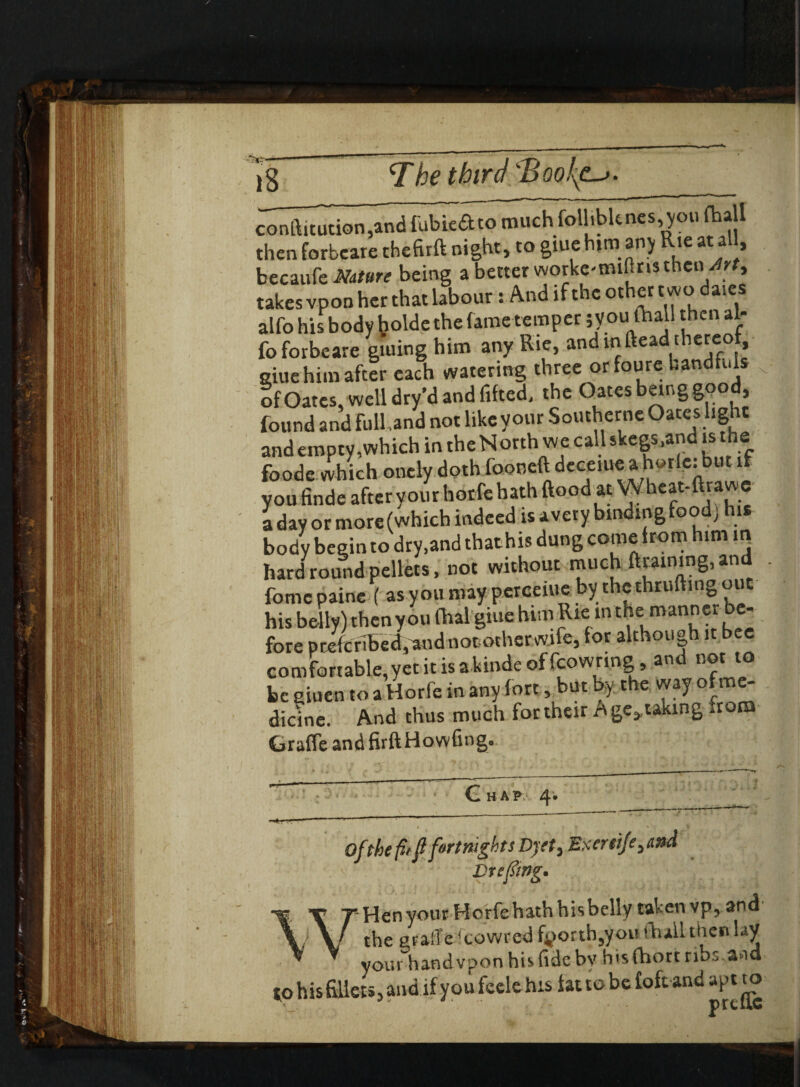 18 The third Booke.
conſtitution,and ſubiect to much ſolliblenes,you ſhall
then forbeare the firſt night, to giue him any Rie at all,
becauſe Nature being a better worke-miſtris then Art,
takes vpon her that labour: And if the other two daies
alſo his body holde the ſame temper ;you ſhall then al-
ſo forbeare giuing him any Rie, and in ſtead thereof,
giue him after each watering three or foure handfuls
of Oates, well dry'd and ſifted, the Oates being good,
ſound and full,and not like your Southerne Oates light
and empty,which in the North we call skegs,and is the
foode which onely doth ſooneſt deceiue a horſe: but if
you finde after your horſe hath ſtood at Wheat-ſtrawe
a day or more (which indeed is a very binding food) his
body begin to dry,and that his dung come from him in
hard round pellets, not without much ſtraining, and
ſome paine ( as you may perceiue by the thruſting out
his belly) then you ſhal giue him Rie in the manner be-
fore preſcribed, and not otherwiſe, for although it bee
comfortable, yet it is a kinde of ſcowring, and not to
be giuen to a Horſe in any ſort, but by the way of me-
dicine. And thus much for their Age, taking from
Graſſe and firſt Howſing.
CHAP. 4.
Of the firſt fortnights Dyet, Exerciſe, and
Dreſſing.
WHen your Horſe hath his belly taken vp, and
the graſſe ſcowred forth,you ſhall then lay
your hand vpon his ſide by his ſhort ribs, and
to his fillets, and if you feele his fat to be ſoft and apt to
preſſe